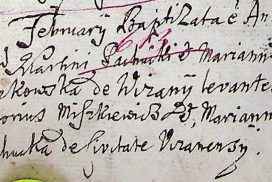 Februarij Baptizata ē An
Martini Pachucki & Mariann
kowska de Wizany levante
orius Miszkiewicz &, Mariann
hucka de Civitate Vizanensij.